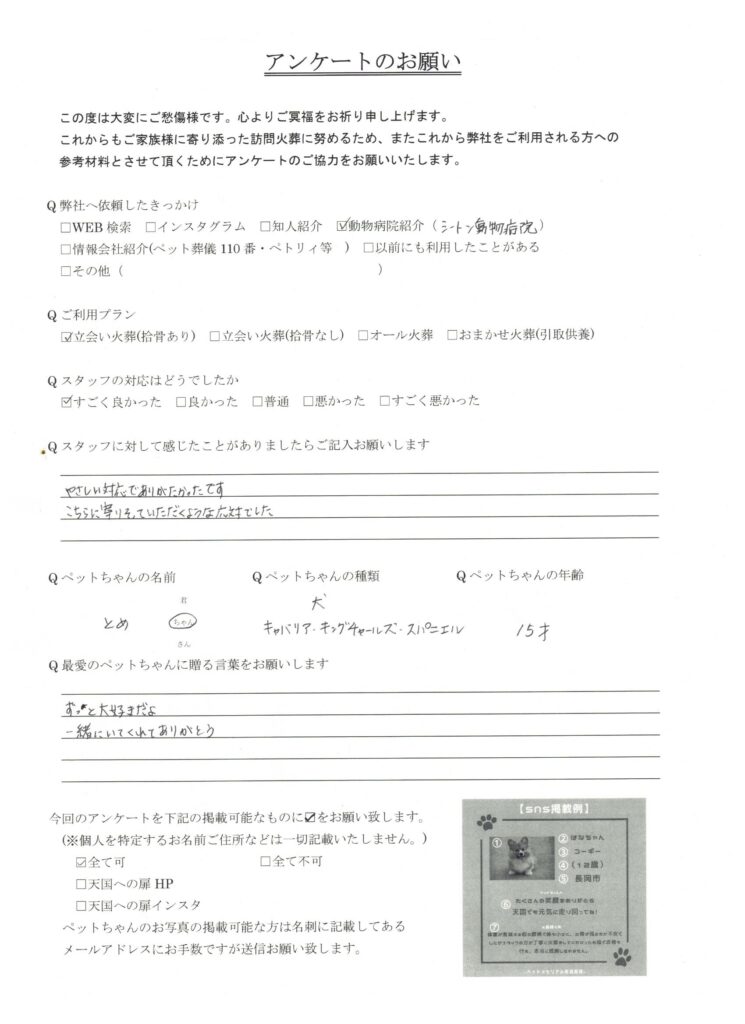 アンケートのお願い
この度は大変にご愁傷様です。心よりご冥福をお祈り申し上げます。
これからもご家族様に寄り添った訪問火葬に努めるため、またこれから弊社をご利用される方への
参考材料とさせて頂くためにアンケートのご協力をお願いいたします。
Q 弊社へ依頼したきっかけ
□WEB 検索 □インスタグラム □知人紹介 ☑動物病院紹介（シートン動物病院）
□情報会社紹介(ペット葬儀 110 番・ペトリィ等 ) □以前にも利用したことがある
□その他（ ）
Q ご利用プラン
☑立会い火葬(拾骨あり) □立会い火葬(拾骨なし) □オール火葬 □おまかせ火葬(引取供養)
Q スタッフの対応はどうでしたか
☑すごく良かった □良かった □普通 □悪かった □すごく悪かった
Q スタッフに対して感じたことがありましたらご記入お願いします
やさしい対応でありがたかったです
こちらに寄りそっていただくような応対でした
Q ペットちゃんの名前 Q ペットちゃんの種類 Q ペットちゃんの年齢
君
とめ ちゃん
さん
犬
キャバリア・キングチャールズ・スパニエル 15才
Q 最愛のペットちゃんに贈る言葉をお願いします
ずっと大好きだよ
一緒にいてくれてありがとう
今回のアンケートを下記の掲載可能なものに☑をお願い致します。
(※個人を特定するお名前ご住所などは一切記載いたしません。)
☑全て可 □全て不可
□天国への扉 HP
□天国への扉インスタ
ペットちゃんのお写真の掲載可能な方は名刺に記載してある
メールアドレスにお手数ですが送信お願い致します。
【sns掲載例】
①
② はなちゃん
③ コーギー
④ （12歳）
⑤ 長岡市
⑥ たくさんの笑顔をありがとう
天国でも元気に走り回ってね！
⑦